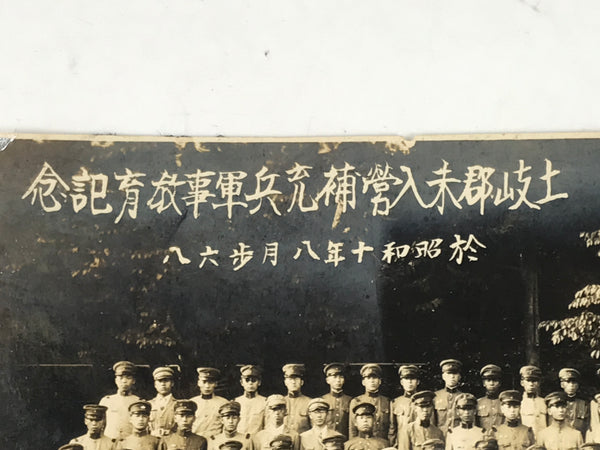 土岐郡未入營補充兵軍事教育記念
於昭和十年八月步六八